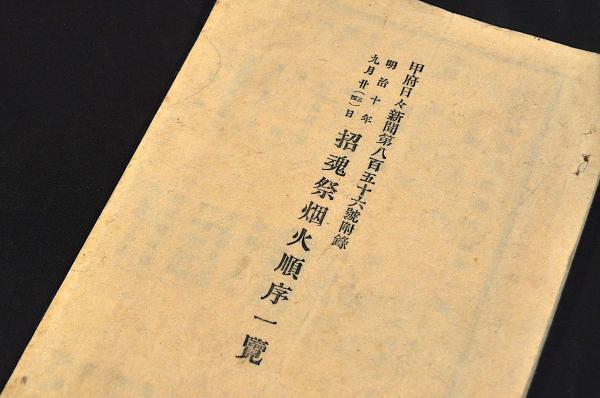 甲府日々新聞第八百五十六號附錄
明治十年
九月廿(四)日
招魂祭烟火順序一覽